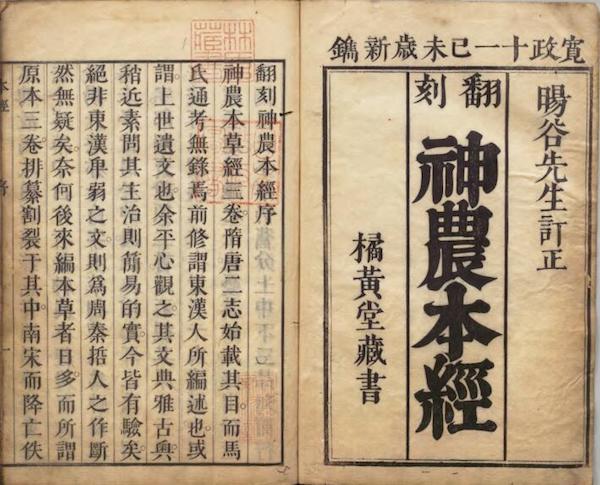 寬政十一己未歲新鐫
暘谷先生訂正
翻刻
神農本經
橘黃堂藏書
翻刻神農本經序
神農本草經三卷。隋唐二志始載其目而馬
氏通考無錄焉前修謂東漢人所編述也或
謂上世遺文也。余平心觀之。其文典雅古奧。
稍近素問其主治則簡易的實今皆有驗矣。
絕非東漢卑弱之文。則爲周秦哲人之作斷
然無疑矣。奈何後來編本草者日多。而所謂
原本三卷排纂割裂于其中南宋而降亡佚
本經
序
一